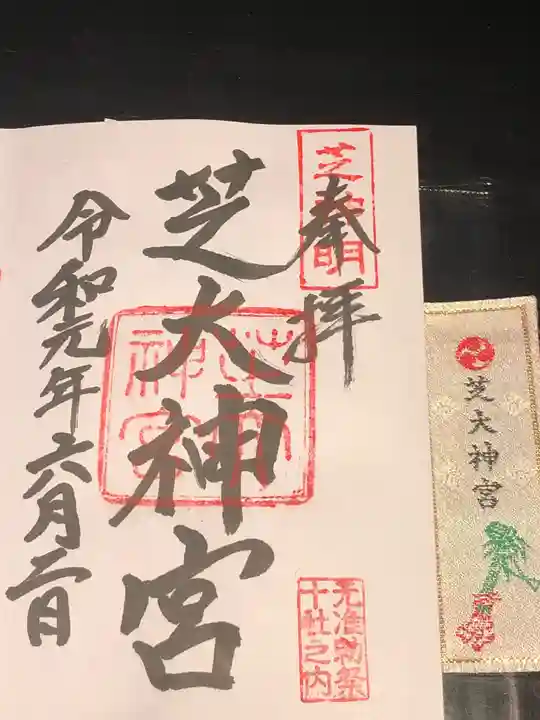 奉拝
芝神明
芝大神宮
芝大神宮
令和元年六月二日
元准勅祭
十社之内
芝大神宮